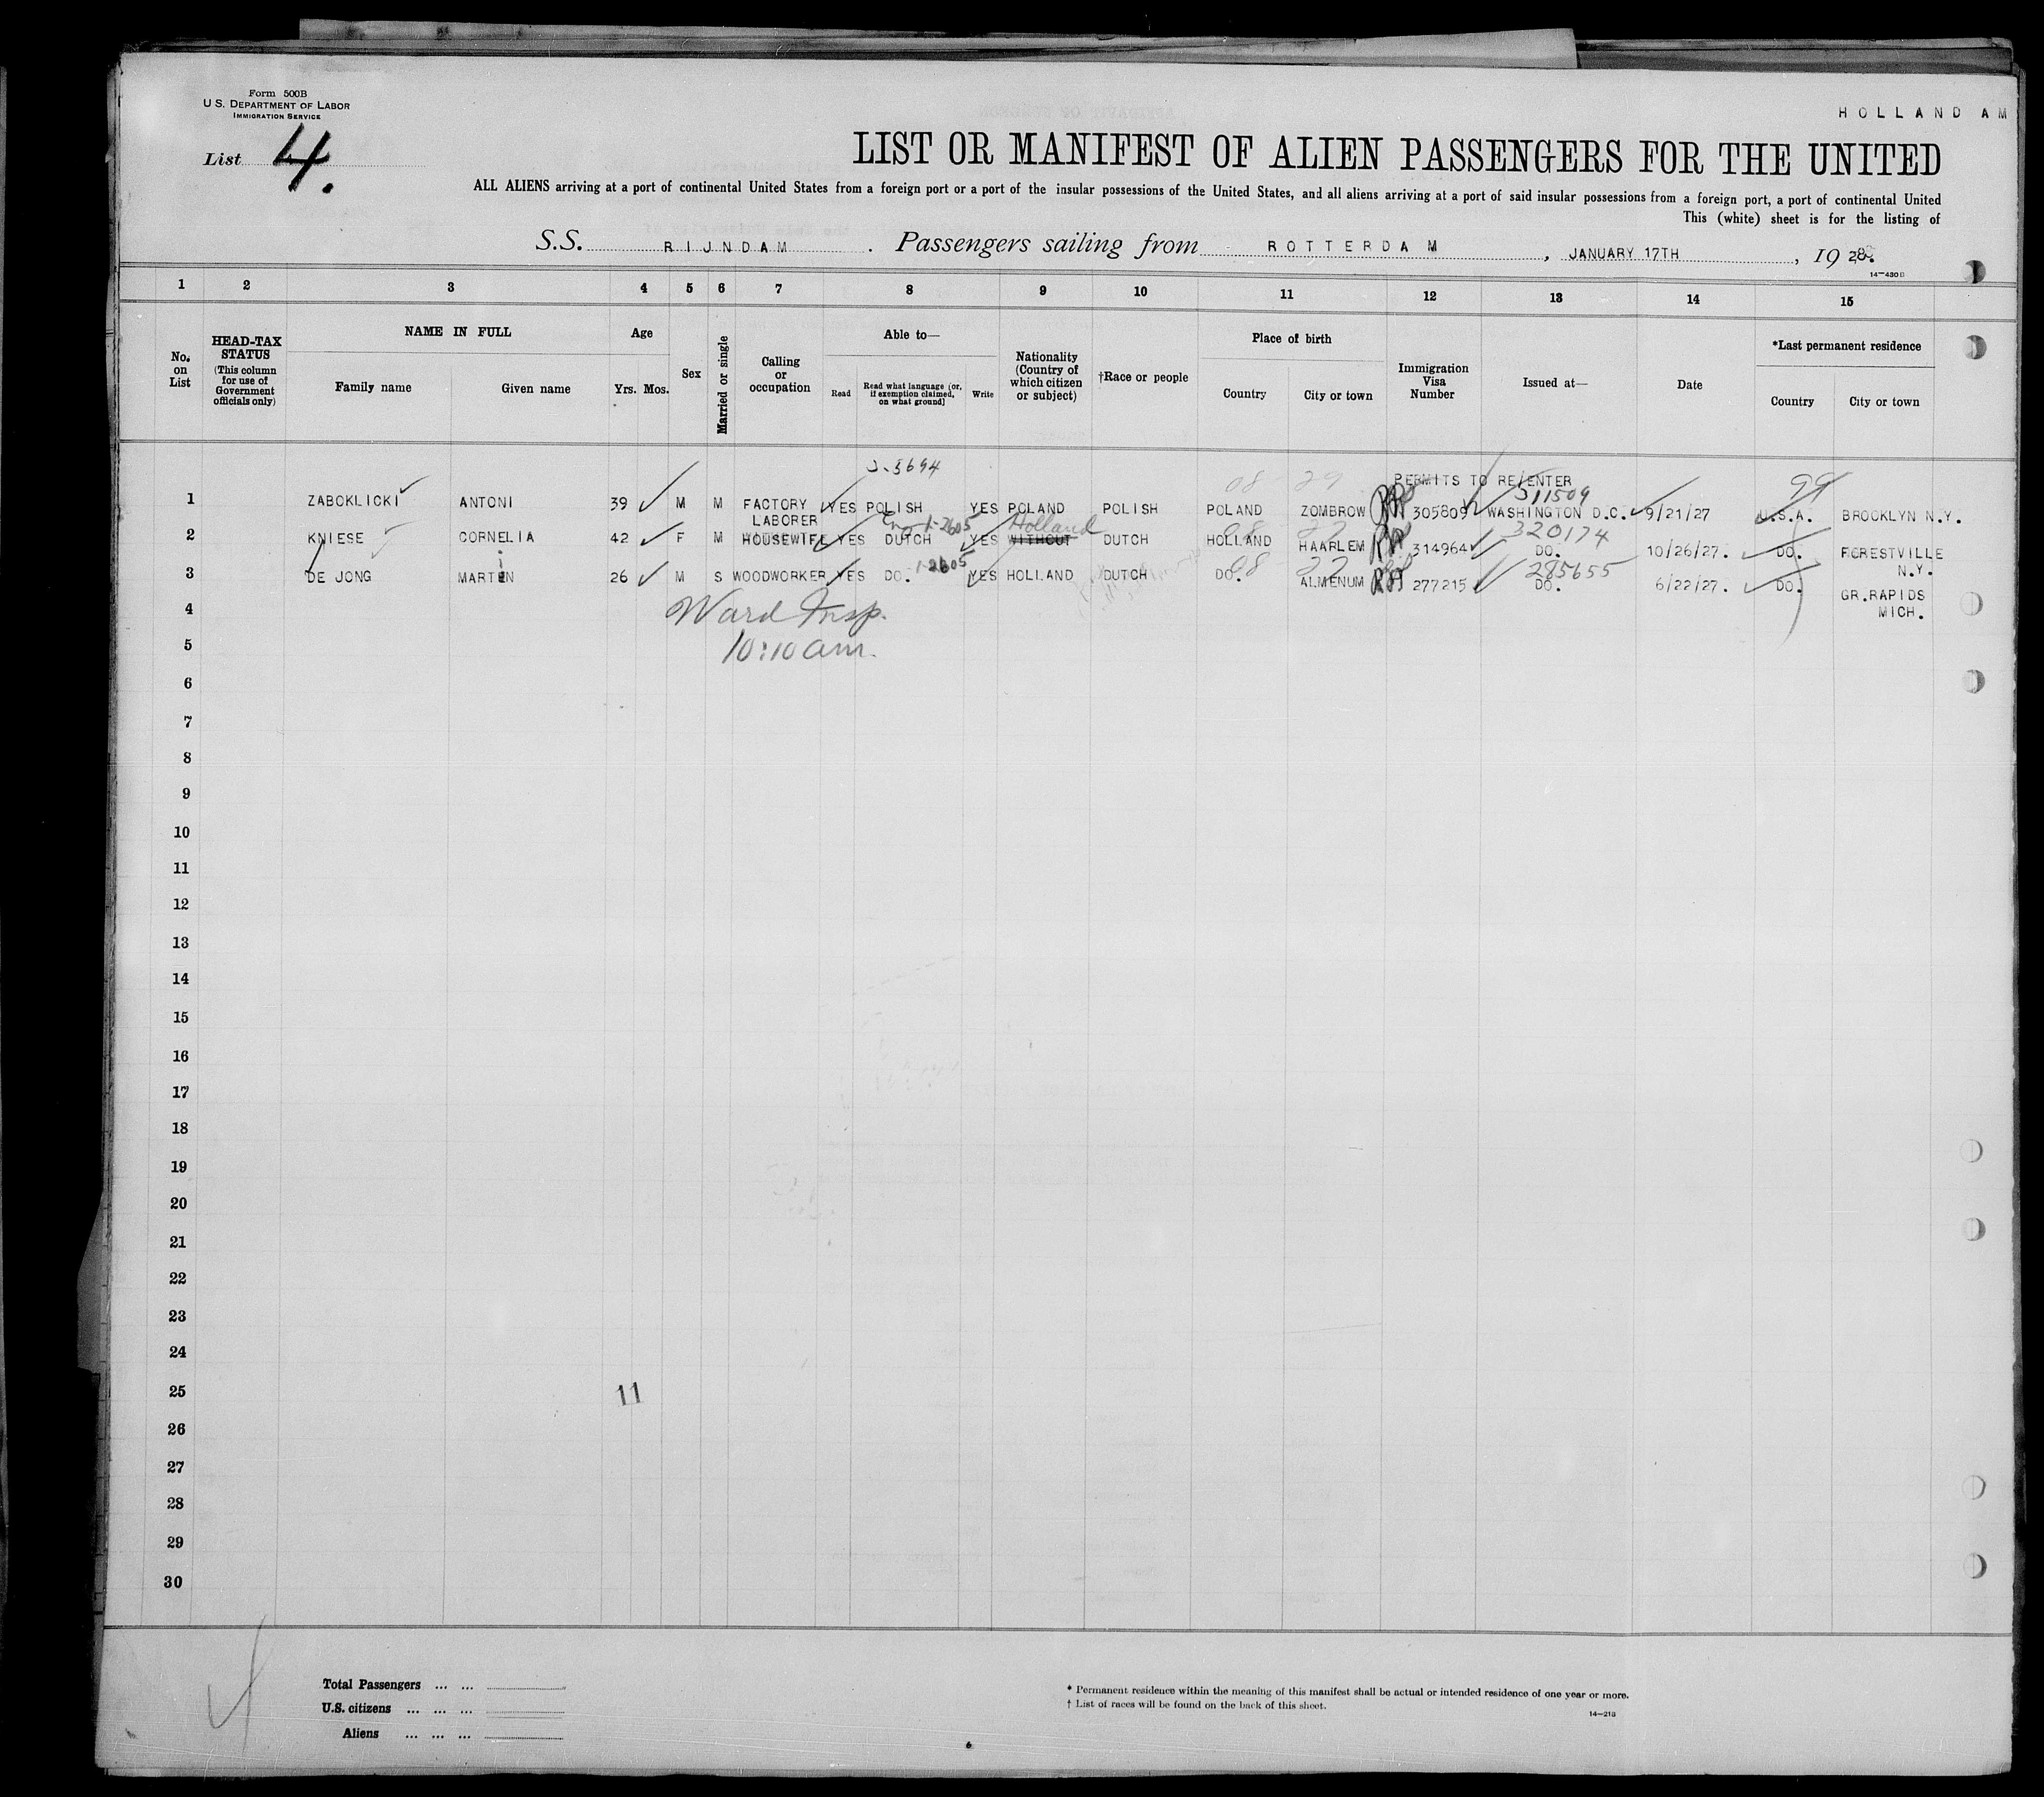 Form 500B
U.S. DEPARTMENT OF LABOR
IMMIGRATION SERVICE
HOLLAND AM
List 4.
LIST OR MANIFEST OF ALIEN PASSENGERS FOR THE UNITED
ALL ALIENS arriving at a port of continental United States from a foreign port or a port of the insular possessions of the United States, and all aliens arriving at a port of said insular possessions from a foreign port, a port of continental United
This (white) sheet is for the listing of
S.S. RIJNDAM . Passengers sailing from ROTTERDAM , JANUARY 17TH , 1928.
14—430B
1 2 3 4 5 6 7 8 9 10 11 12 13 14 15
No. on List
HEAD-TAX STATUS (This column for use of Government officials only)
NAME IN FULL
Family name Given name
Age
Yrs. Mos.
Sex
Married or single
Calling or occupation
Able to—
Read Read what language (or, if exemption claimed, on what ground) Write
Nationality (Country of which citizen or subject)
†Race or people
Place of birth
Country City or town
Immigration Visa Number
Issued at—
Date
*Last permanent residence
Country City or town
5694
08 29 PERMITS TO RE/ENTER 99
311509
1 ZABOKLICKI ANTONI 39 M M FACTORY LABORER YES POLISH YES POLAND POLISH POLAND ZOMBROW 305809 WASHINGTON D.C. 9/21/27 U.S.A. BROOKLYN N.Y.
Eng 1-2605 Holland 08 22 320174
2 KNIESE CORNELIA 42 F M HOUSEWIFE YES DUTCH YES WITHOUT DUTCH HOLLAND HAARLEM 314964 DO. 10/26/27. DO. FORESTVILLE N.Y.
1-2605 08 22 285655
3 DE JONG MARTIN 26 M S WOODWORKER YES DO. YES HOLLAND DUTCH DO. ALMENUM 277215 DO. 6/22/27. DO. GR.RAPIDS MICH.
4 Ward Insp.
5 10:10 am.
6
7
8
9
10
11
12
13
14
15
16
17
18
19
20
21
22
23
24
25 11
26
27
28
29
30
Total Passengers ... ...
U.S. citizens ... ... ...
Aliens ... ... ...
* Permanent residence within the meaning of this manifest shall be actual or intended residence of one year or more.
† List of races will be found on the back of this sheet.
14—213